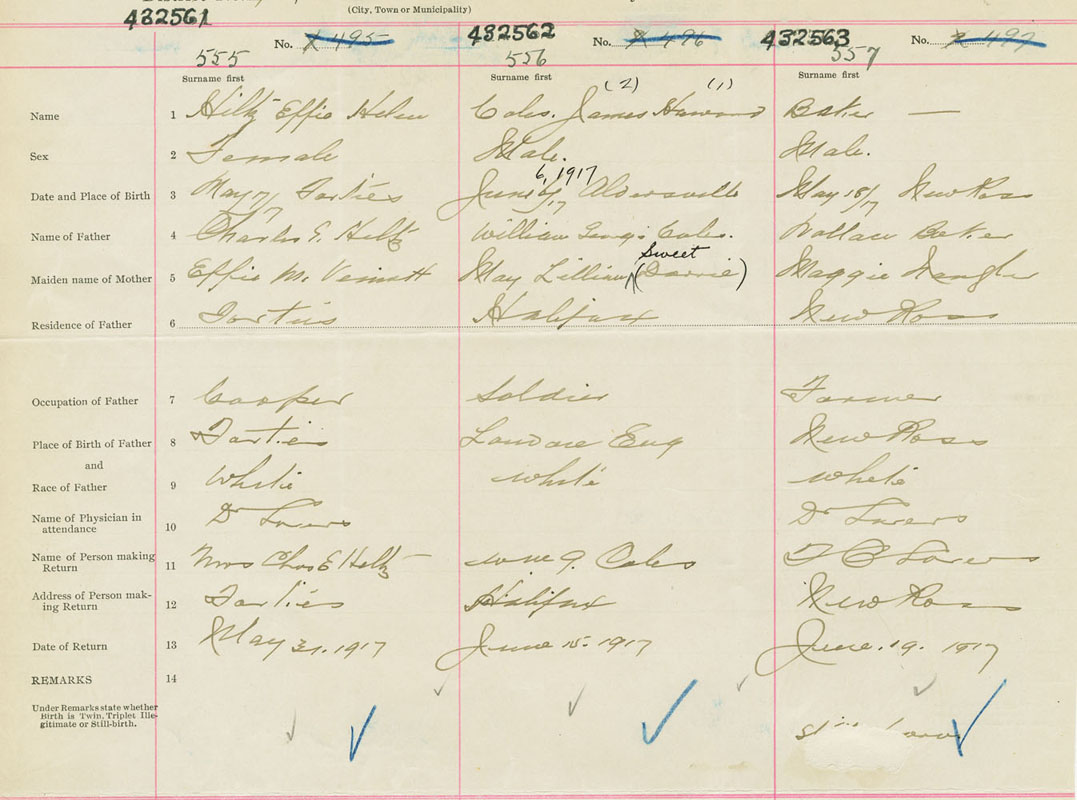 (City, Town or Municipality)
432561 No. 495 432562 No. 496 432563 No. 497
555 556 557
Surname first Surname first Surname first
(2) (1)
Name 1 Hiltz Effie Helen Coles. James Howard Baker —
Sex 2 Female Male. Male.
6, 1917
Date and Place of Birth 3 May 17/17 Forties June 6/17 Aldersville May 18/17 New Ross
Name of Father 4 Charles E. Hiltz William George Coles. Wallace Baker
Sweet
Maiden name of Mother 5 Effie M. Veinott May Lillian (Dorrie) Maggie
Residence of Father 6 Forties Halifax New Ross
Occupation of Father 7 Cooper Soldier Farmer
Place of Birth of Father 8 Forties Eng New Ross
and
Race of Father 9 White White White
Name of Physician in
attendance 10 Dr Dr
Name of Person making
Return 11 Mrs Chas E Hiltz Wm G. Coles
Address of Person mak-
ing Return 12 Forties Halifax New Ross
Date of Return 13 May 31, 1917 June 15. 1917 June. 19. 1917
REMARKS 14
Under Remarks state whether
Birth is Twin, Triplet Ille-
gitimate or Still-birth.